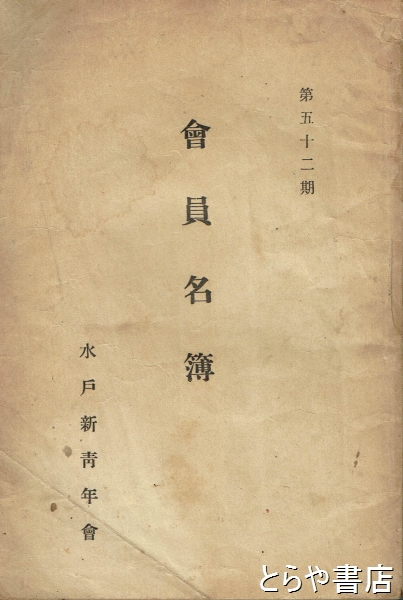 第五十二期
會員名簿
水戸新靑年會
とらや書店